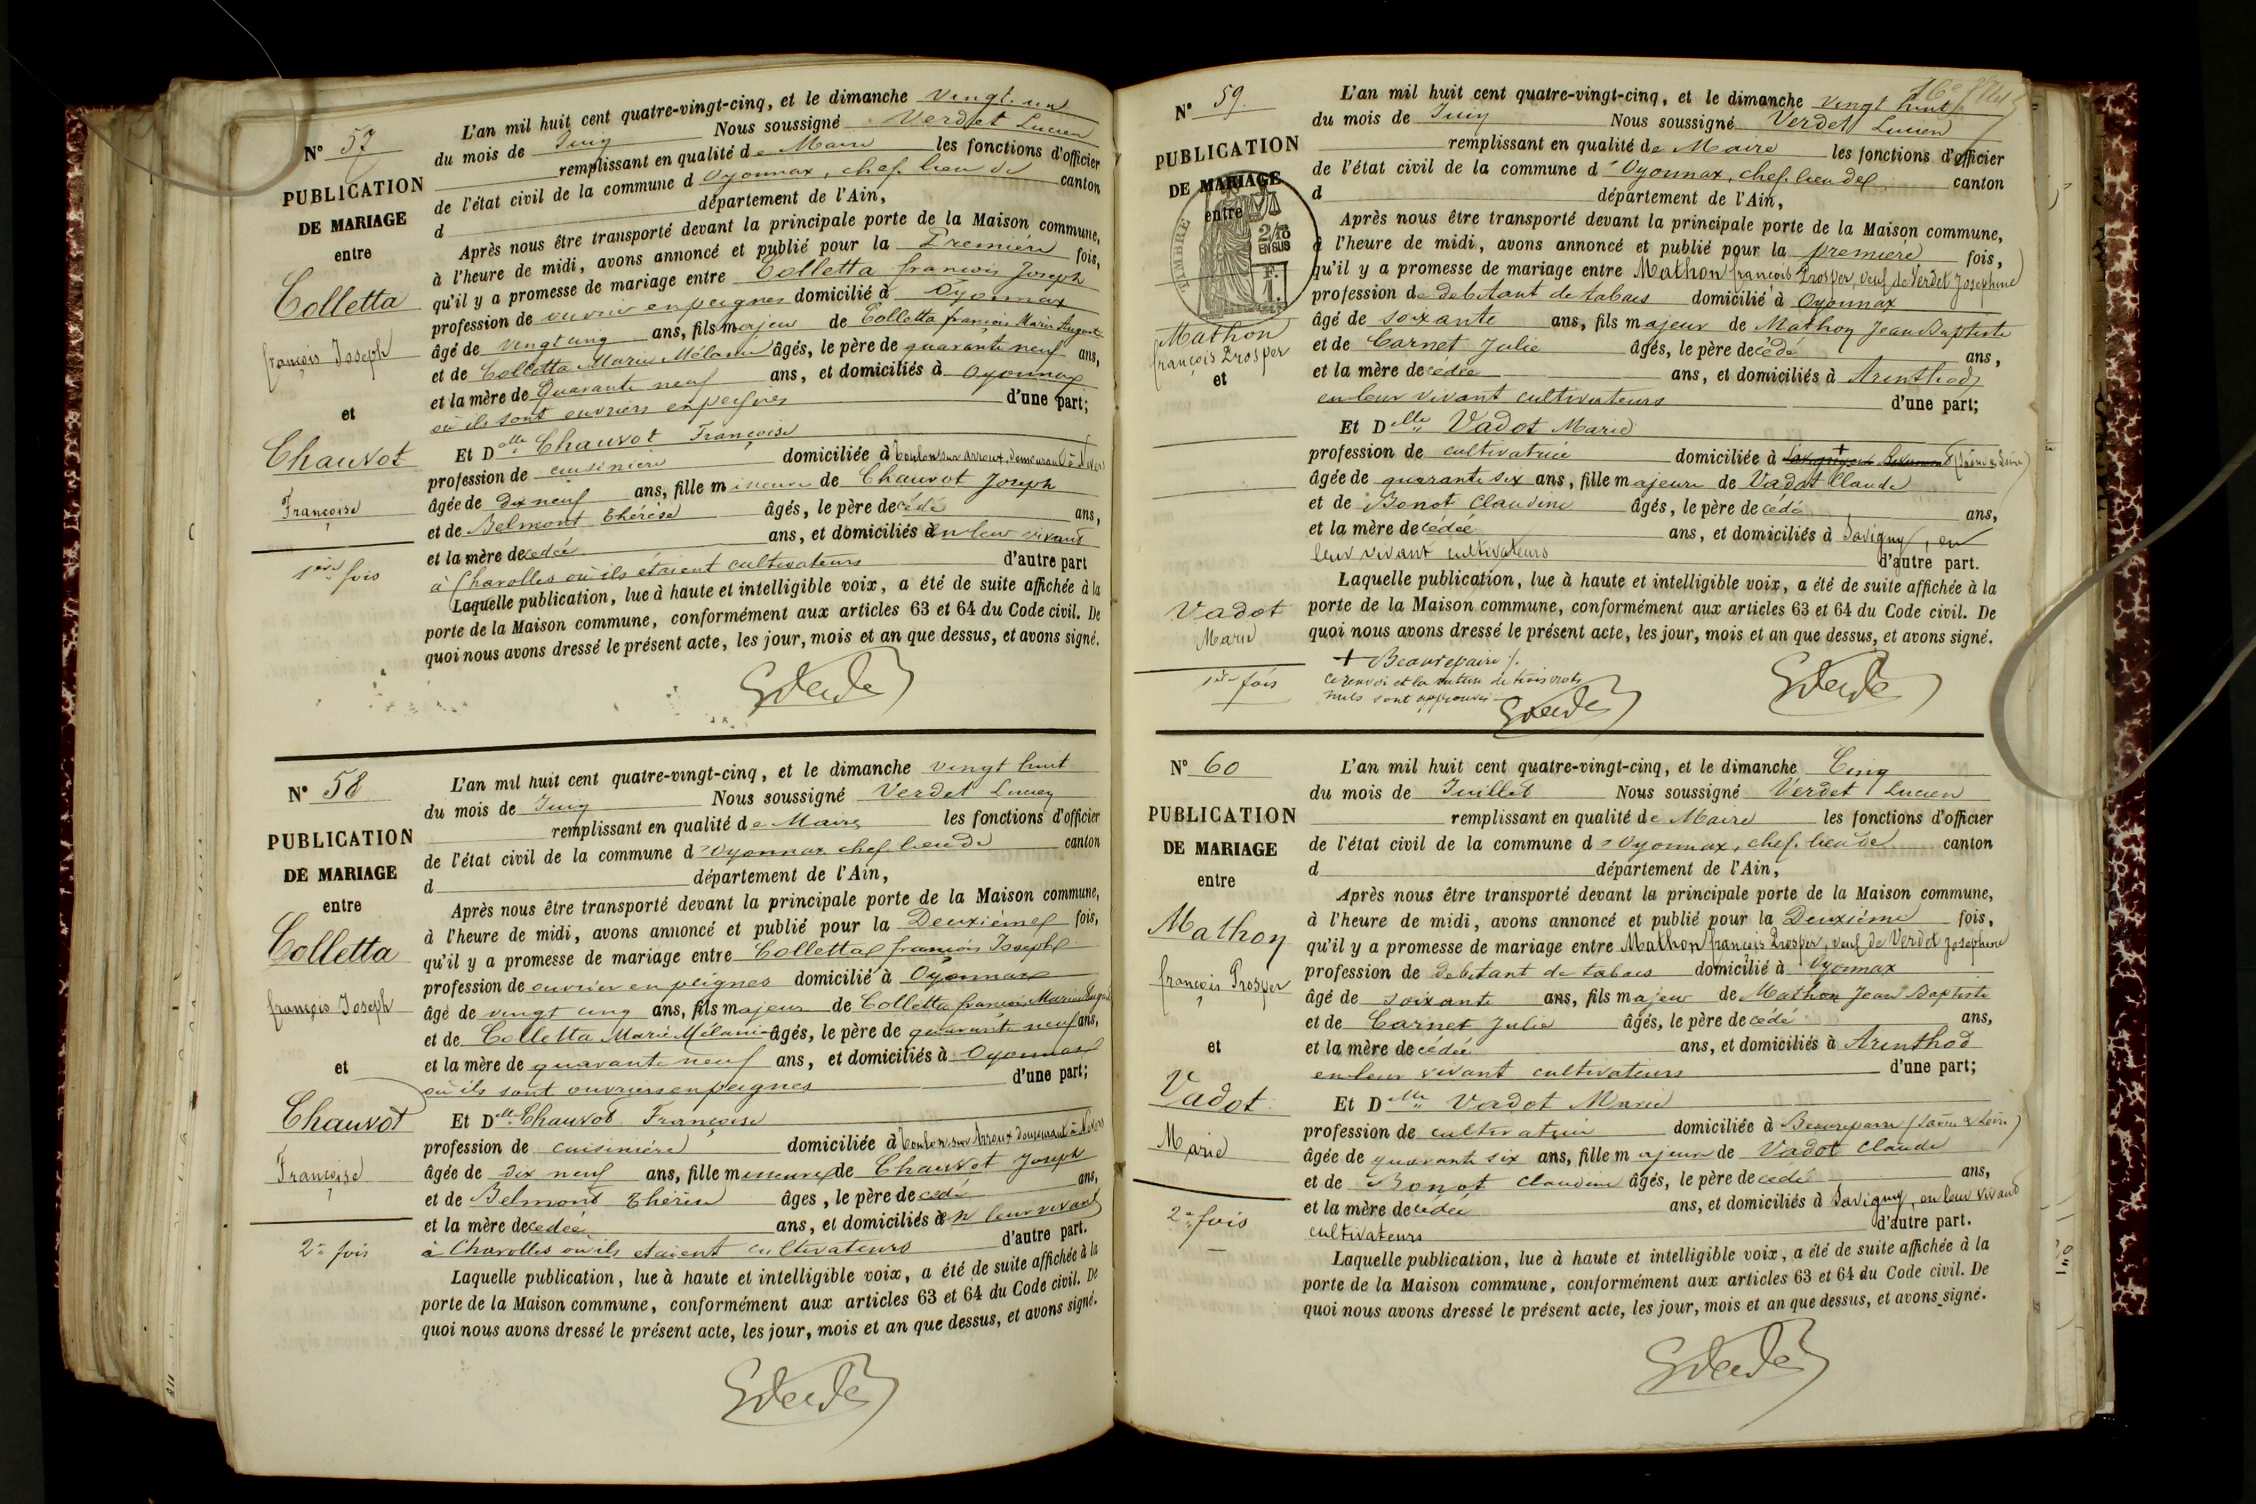 N° 57
PUBLICATION
DE MARIAGE
entre
Colletta
françois Joseph
et
Chauvot
Françoise
1ère fois
L'an mil huit cent quatre-vingt-cinq, et le dimanche vingt-un
du mois de Juin Nous soussigné Verdet Lucien
remplissant en qualité de Maire les fonctions d'officier
de l'état civil de la commune d Oyonnax, chef-lieu de canton
d département de l'Ain,
Après nous être transporté devant la principale porte de la Maison commune,
à l'heure de midi, avons annoncé et publié pour la Première fois,
qu'il y a promesse de mariage entre Colletta françois Joseph
profession de ouvrier en peignes domicilié à Oyonnax
âgé de vingt cinq ans, fils majeur de Colletta françois Marie Auguste
et de Colletta Marie Mélanie âgés, le père de quarante neuf ans,
et la mère de Quarante neuf ans, et domiciliés à Oyonnax
où ils sont ouvriers en peignes d'une part;
Et Delle Chauvot Françoise
profession de cuisinière domiciliée à Toulon sur Arroux, demeurant à Nevers
âgée de dix neuf ans, fille mineure de Chauvot Joseph
et de Belmont Thérèse âgés, le père décédé ans,
et la mère décédée ans, et domiciliés en leur vivant
à Charolles où ils étaient cultivateurs d'autre part
Laquelle publication, lue à haute et intelligible voix, a été de suite affichée à la
porte de la Maison commune, conformément aux articles 63 et 64 du Code civil. De
quoi nous avons dressé le présent acte, les jour, mois et an que dessus, et avons signé.
N° 58
PUBLICATION
DE MARIAGE
entre
Colletta
françois Joseph
et
Chauvot
Françoise
2e fois
L'an mil huit cent quatre-vingt-cinq, et le dimanche vingt huit
du mois de Juin Nous soussigné Verdet Lucien
remplissant en qualité de Maire les fonctions d'officier
de l'état civil de la commune d'Oyonnax chef-lieu de canton
d département de l'Ain,
Après nous être transporté devant la principale porte de la Maison commune,
à l'heure de midi, avons annoncé et publié pour la Deuxième fois,
qu'il y a promesse de mariage entre Colletta françois Joseph
profession de ouvrier en peignes domicilié à Oyonnax
âgé de vingt cinq ans, fils majeur de Colletta françois Marie Auguste
et de Colletta Marie Mélanie âgés, le père de quarante neuf ans,
et la mère de quarante neuf ans, et domiciliés à Oyonnax
où ils sont ouvriers en peignes d'une part;
Et Delle Chauvot Françoise
profession de cuisinière domiciliée à Toulon sur Arroux demeurant à Nevers
âgée de dix neuf ans, fille mineure de Chauvot Joseph
et de Belmont Thérèse âges, le père décédé ans,
et la mère décédée ans, et domiciliés en leur vivant
à Charolles où ils étaient cultivateurs d'autre part.
Laquelle publication, lue à haute et intelligible voix, a été de suite affichée à la
porte de la Maison commune, conformément aux articles 63 et 64 du Code civil. De
quoi nous avons dressé le présent acte, les jour, mois et an que dessus, et avons signé.
N° 59
PUBLICATION
DE MARIAGE
entre
TIMBRE
2/10
EN SUS
Mathon
françois Prosper
et
Vadot
Marie
1ère fois
L'an mil huit cent quatre-vingt-cinq, et le dimanche vingt huit
du mois de Juin Nous soussigné Verdet Lucien
remplissant en qualité de Maire les fonctions d'officier
de l'état civil de la commune d'Oyonnax, chef-lieu de canton
d département de l'Ain,
Après nous être transporté devant la principale porte de la Maison commune,
à l'heure de midi, avons annoncé et publié pour la première fois,
qu'il y a promesse de mariage entre Mathon françois Prosper, veuf de Verdet Josephine
profession de debitant de tabacs domicilié à Oyonnax
âgé de soixante ans, fils majeur de Mathon Jean Baptiste
et de Carnet Julie âgés, le père décédé ans,
et la mère décédée ans, et domiciliés à Arinthod
en leur vivant cultivateurs d'une part;
Et Delle Vadot Marie
profession de cultivatrice domiciliée à + (Saône & Loire)
âgée de quarante six ans, fille majeure de Vadot Claude
et de Bonot Claudine âgés, le père décédé ans,
et la mère décédée ans, et domiciliés à Savigny, en
leur vivant cultivateurs d'autre part.
Laquelle publication, lue à haute et intelligible voix, a été de suite affichée à la
porte de la Maison commune, conformément aux articles 63 et 64 du Code civil. De
quoi nous avons dressé le présent acte, les jour, mois et an que dessus, et avons signé.
+ Beaurepaire
Ce renvoi et la rature de trois mots
nuls sont approuvés
N° 60
PUBLICATION
DE MARIAGE
entre
Mathon
françois Prosper
et
Vadot
Marie
2e fois
L'an mil huit cent quatre-vingt-cinq, et le dimanche Cinq
du mois de Juillet Nous soussigné Verdet Lucien
remplissant en qualité de Maire les fonctions d'officier
de l'état civil de la commune d'Oyonnax, chef-lieu de canton
d département de l'Ain,
Après nous être transporté devant la principale porte de la Maison commune,
à l'heure de midi, avons annoncé et publié pour la Deuxième fois,
qu'il y a promesse de mariage entre Mathon françois Prosper, veuf de Verdet Josephine
profession de debitant de tabacs domicilié à Oyonnax
âgé de soixante ans, fils majeur de Mathon Jean Baptiste
et de Carnet Julie âgés, le père décédé ans,
et la mère décédée ans, et domiciliés à Arinthod
en leur vivant cultivateurs d'une part;
Et Delle Vadot Marie
profession de cultivatrice domiciliée à Beaurepaire (Saône & Loire)
âgée de quarante six ans, fille majeure de Vadot Claude
et de Bonot Claudine âgés, le père décédé ans,
et la mère décédée ans, et domiciliés à Savigny, en leur vivant
cultivateurs d'autre part.
Laquelle publication, lue à haute et intelligible voix, a été de suite affichée à la
porte de la Maison commune, conformément aux articles 63 et 64 du Code civil. De
quoi nous avons dressé le présent acte, les jour, mois et an que dessus, et avons signé.